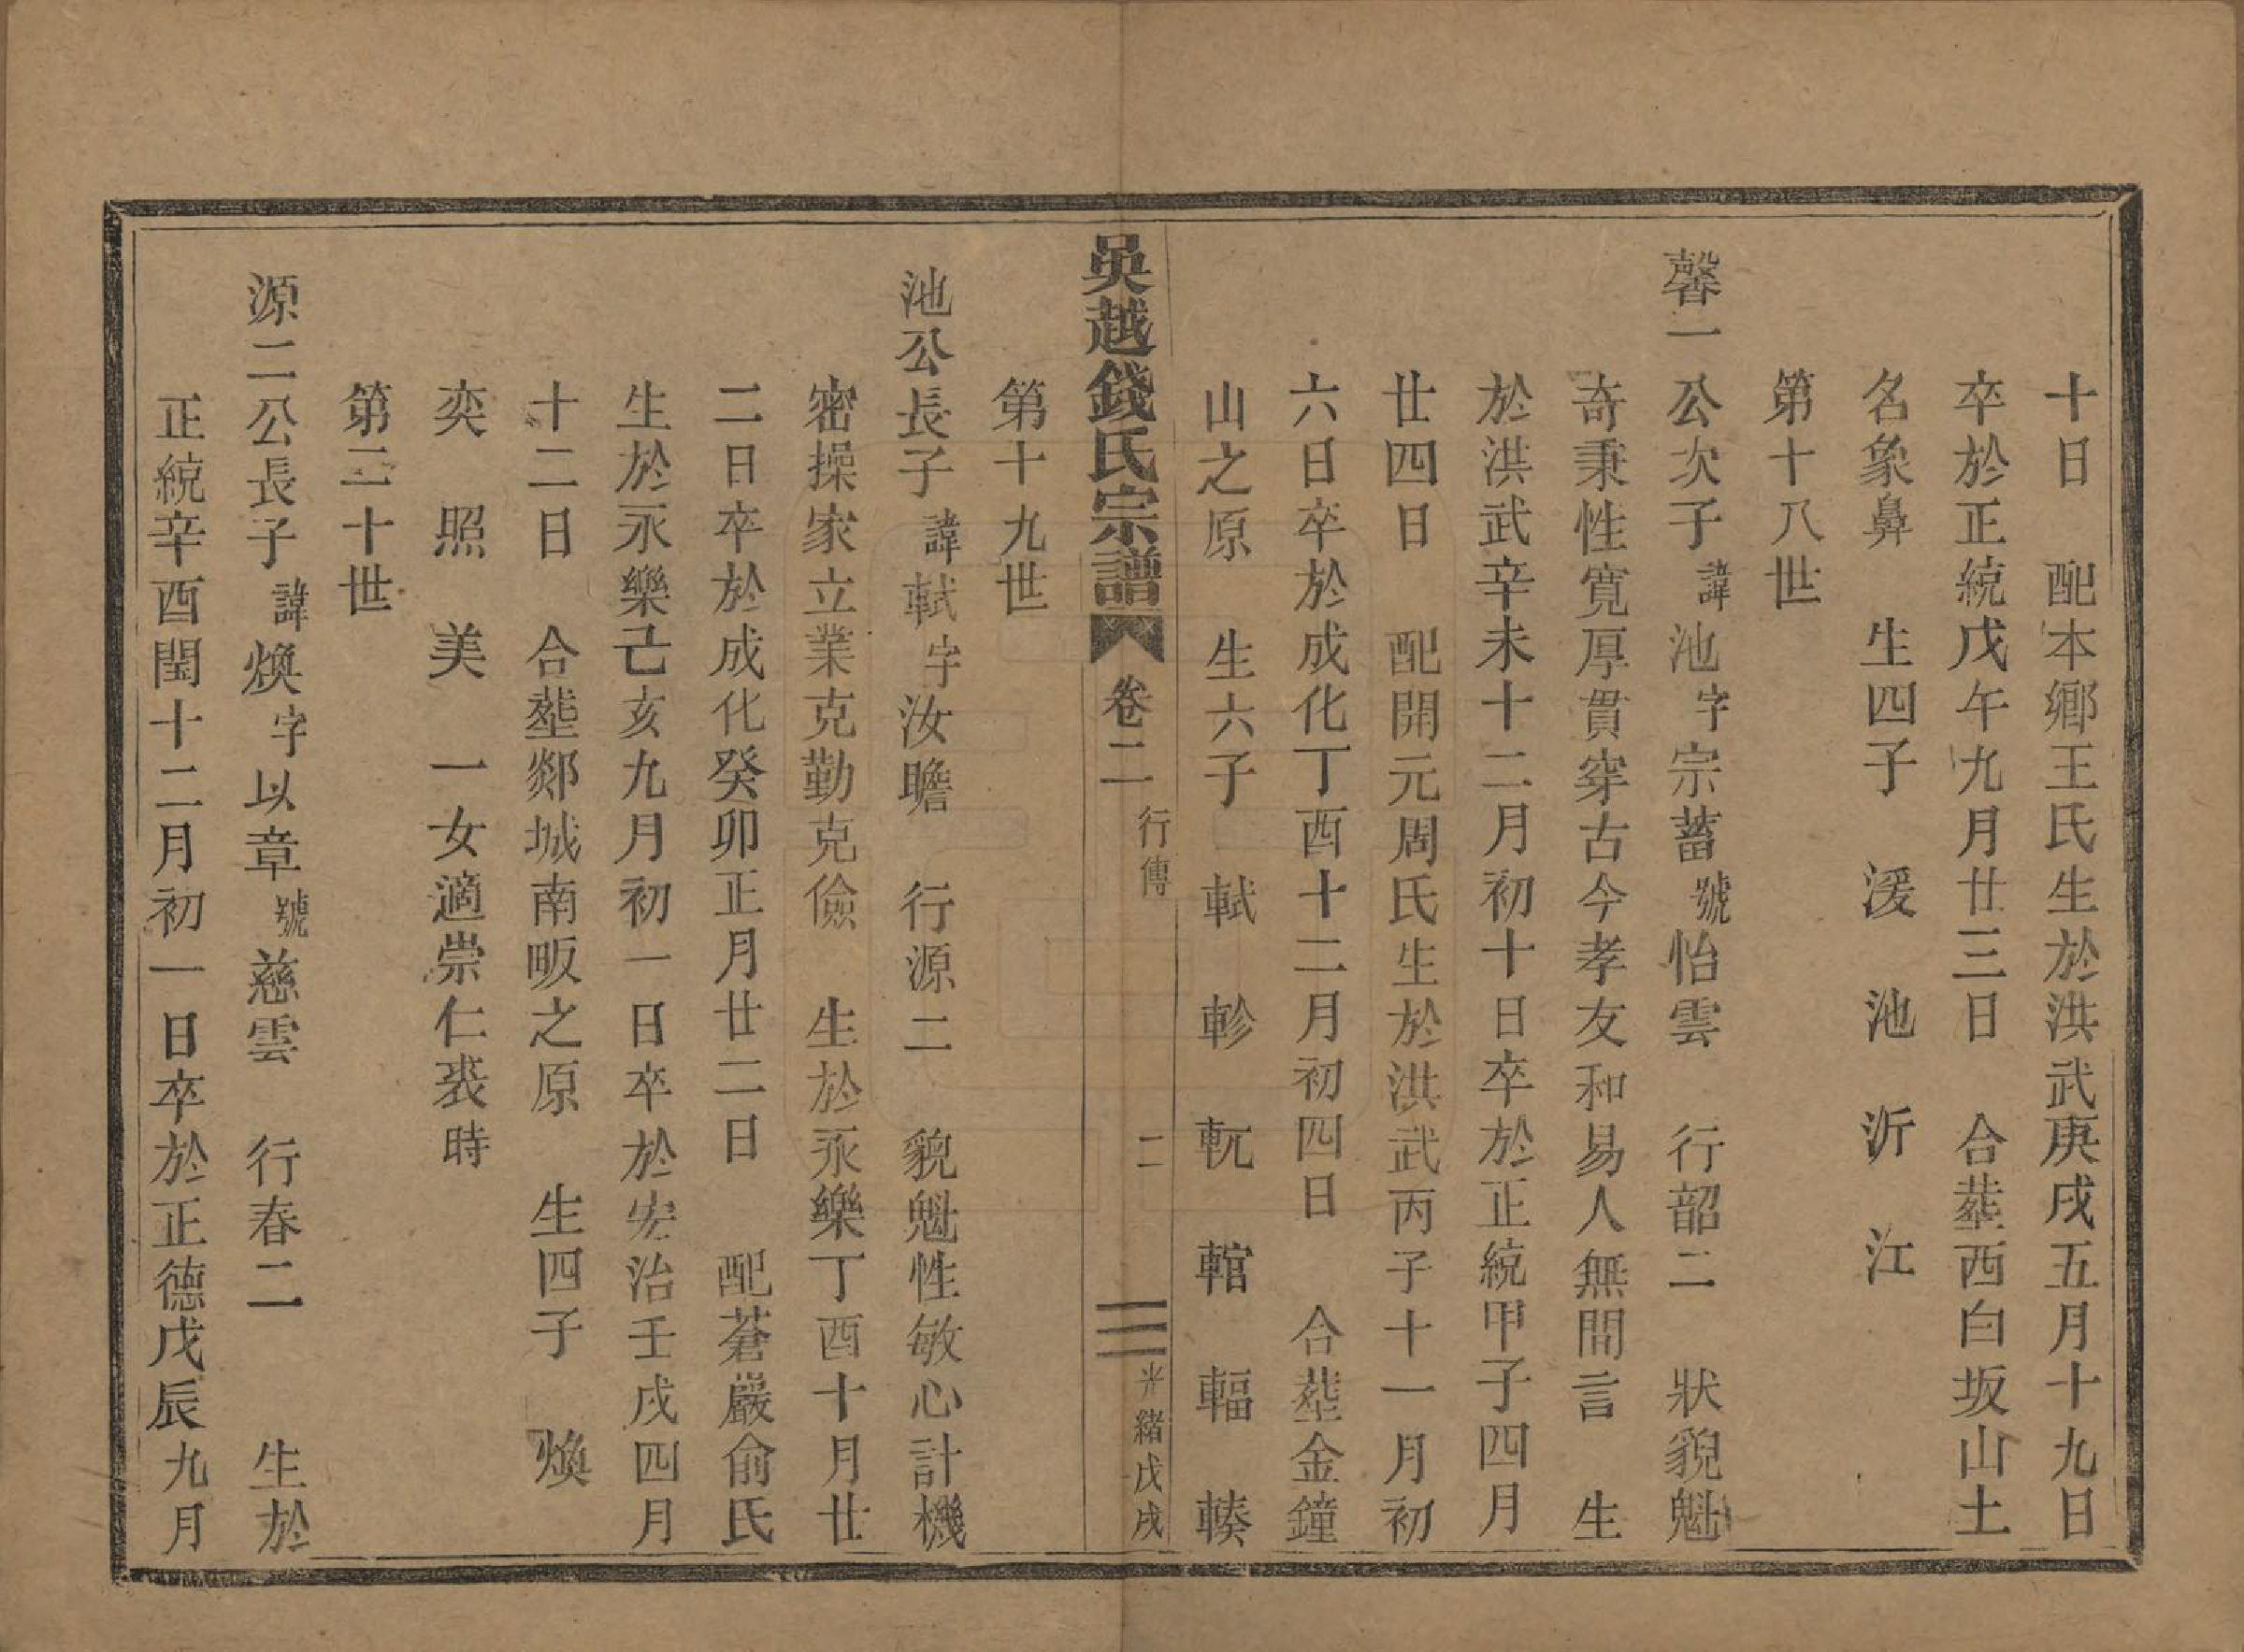 十日　配本鄉王氏生於洪武庚戌五月十九日
卒於正統戊午九月廿三日　合塟西白坂山土
名象鼻　生四子　湲　池　沂　江
第十八世
馨一公次子諱池字宗蓄號怡雲　行韶二　狀貎魁
奇秉性寛厚貫穿古今孝友和易人無間言　生
於洪武辛未十二月初十日卒於正統甲子四月
廿四日　配開元周氏生於洪武丙子十一月初
六日卒於成化丁酉十二月初四日　合塟金鐘
山之原　生六子　軾　軫　軏　輨　輻　輳
吳越錢氏宗譜　卷二　行傳　二　光緒戊戌
第十九世
池公長子諱軾字汝瞻　行源二　貌魁性敏心計機
密操家立業克勤克儉　生於永樂丁酉十月廿
二日卒於成化癸卯正月廿二日　配蒼嚴俞氏
生於永樂己亥九月初一日卒於宏治壬戌四月
十二日　合塟郯城南畈之原　生四子　煥
奕　照　美　一女適崇仁裘時
第二十世
源二公長子諱煥字以章號慈雲　行春二　生於
正統辛酉閏十二月初一日卒於正德戊辰九月